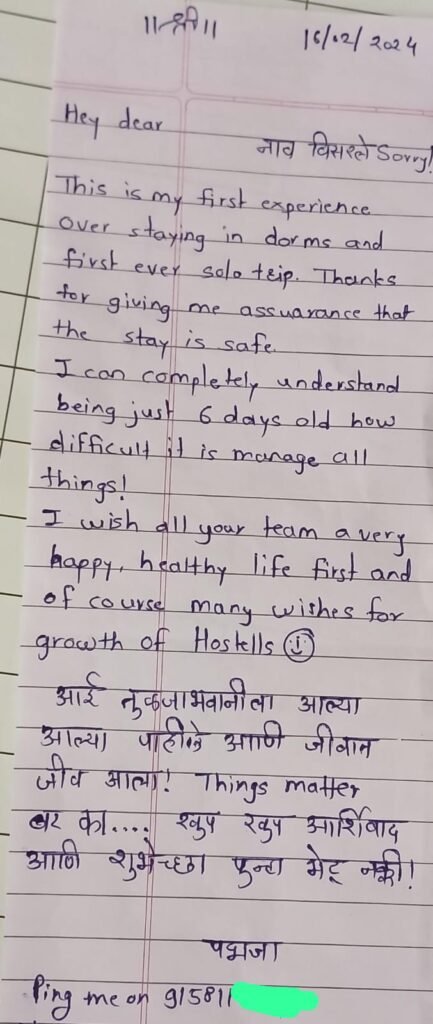 ॥श्री॥
16/02/2024
Hey dear
नाव विसरले Sorry!
This is my first experience
over staying in dorms and
first ever solo trip. Thanks
for giving me assuarance that
the stay is safe.
I can completely understand
being just 6 days old how
difficult it is manage all
things!
I wish all your team a very
happy, healthy life first and
of course many wishes for
growth of Hostells ☺
आई तुळजाभवानीला आल्या
आल्या पाहीले आणि जीवात
जीव आला! Things matter
बर का.... खुप खुप आर्शिवाद
आणि शुभेच्छा पुन्हा भेटू नक्की!
पद्मजा
Ping me on 915811